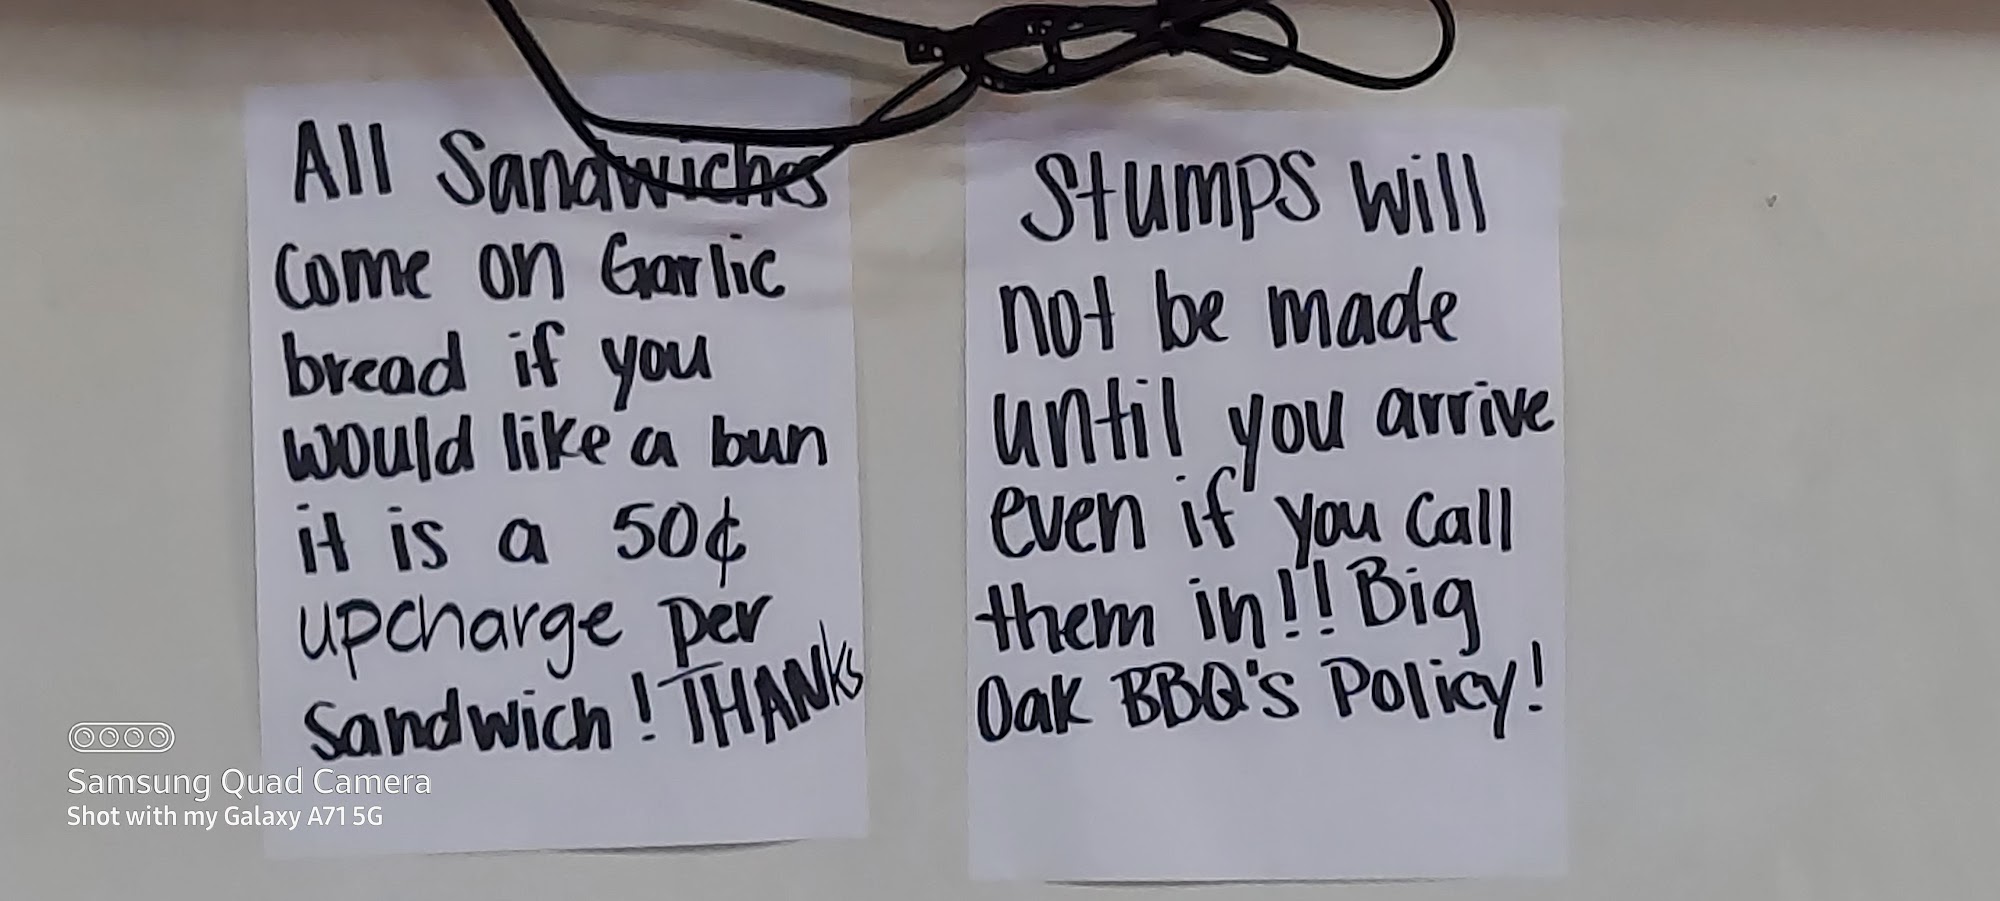 All Sandwiches
Come on Garlic
bread if you
would like a bun
it is a 50¢
upcharge per
Sandwich! THANKS
Stumps will
not be made
until you arrive
even if you call
them in!! Big
Oak BBQ's Policy!
Samsung Quad Camera
Shot with my Galaxy A71 5G